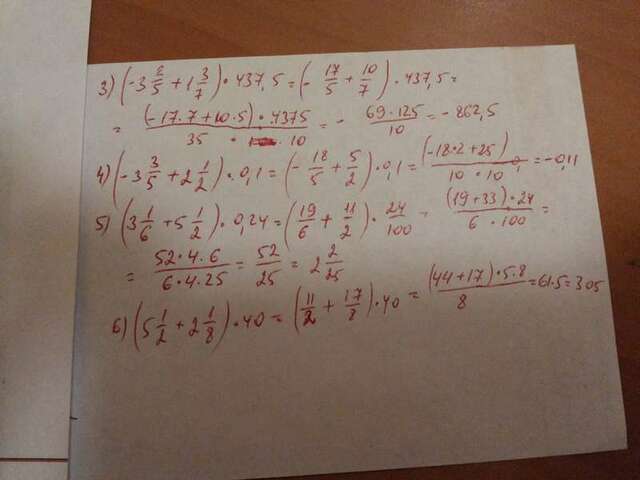 3) (-3 2/5 + 1 3/7) · 437,5 = (- 17/5 + 10/7) · 437,5 =
= (-17·7+10·5) · 4375 / 35 · 10 = - 69·125/10 = -862,5
4) (-3 3/5 + 2 1/2) · 0,1 = (- 18/5 + 5/2) · 0,1 = (-18·2+25) / 10·10 = -0,11
5) (3 1/6 + 5 1/2) · 0,24 = (19/6 + 11/2) · 24/100 = (19+33)·24 / 6·100 =
= 52·4·6 / 6·4·25 = 52/25 = 2 2/25
6) (5 1/2 + 2 1/8) · 40 = (11/2 + 17/8) · 40 = (44+17)·5·8 / 8 = 61·5 = 305